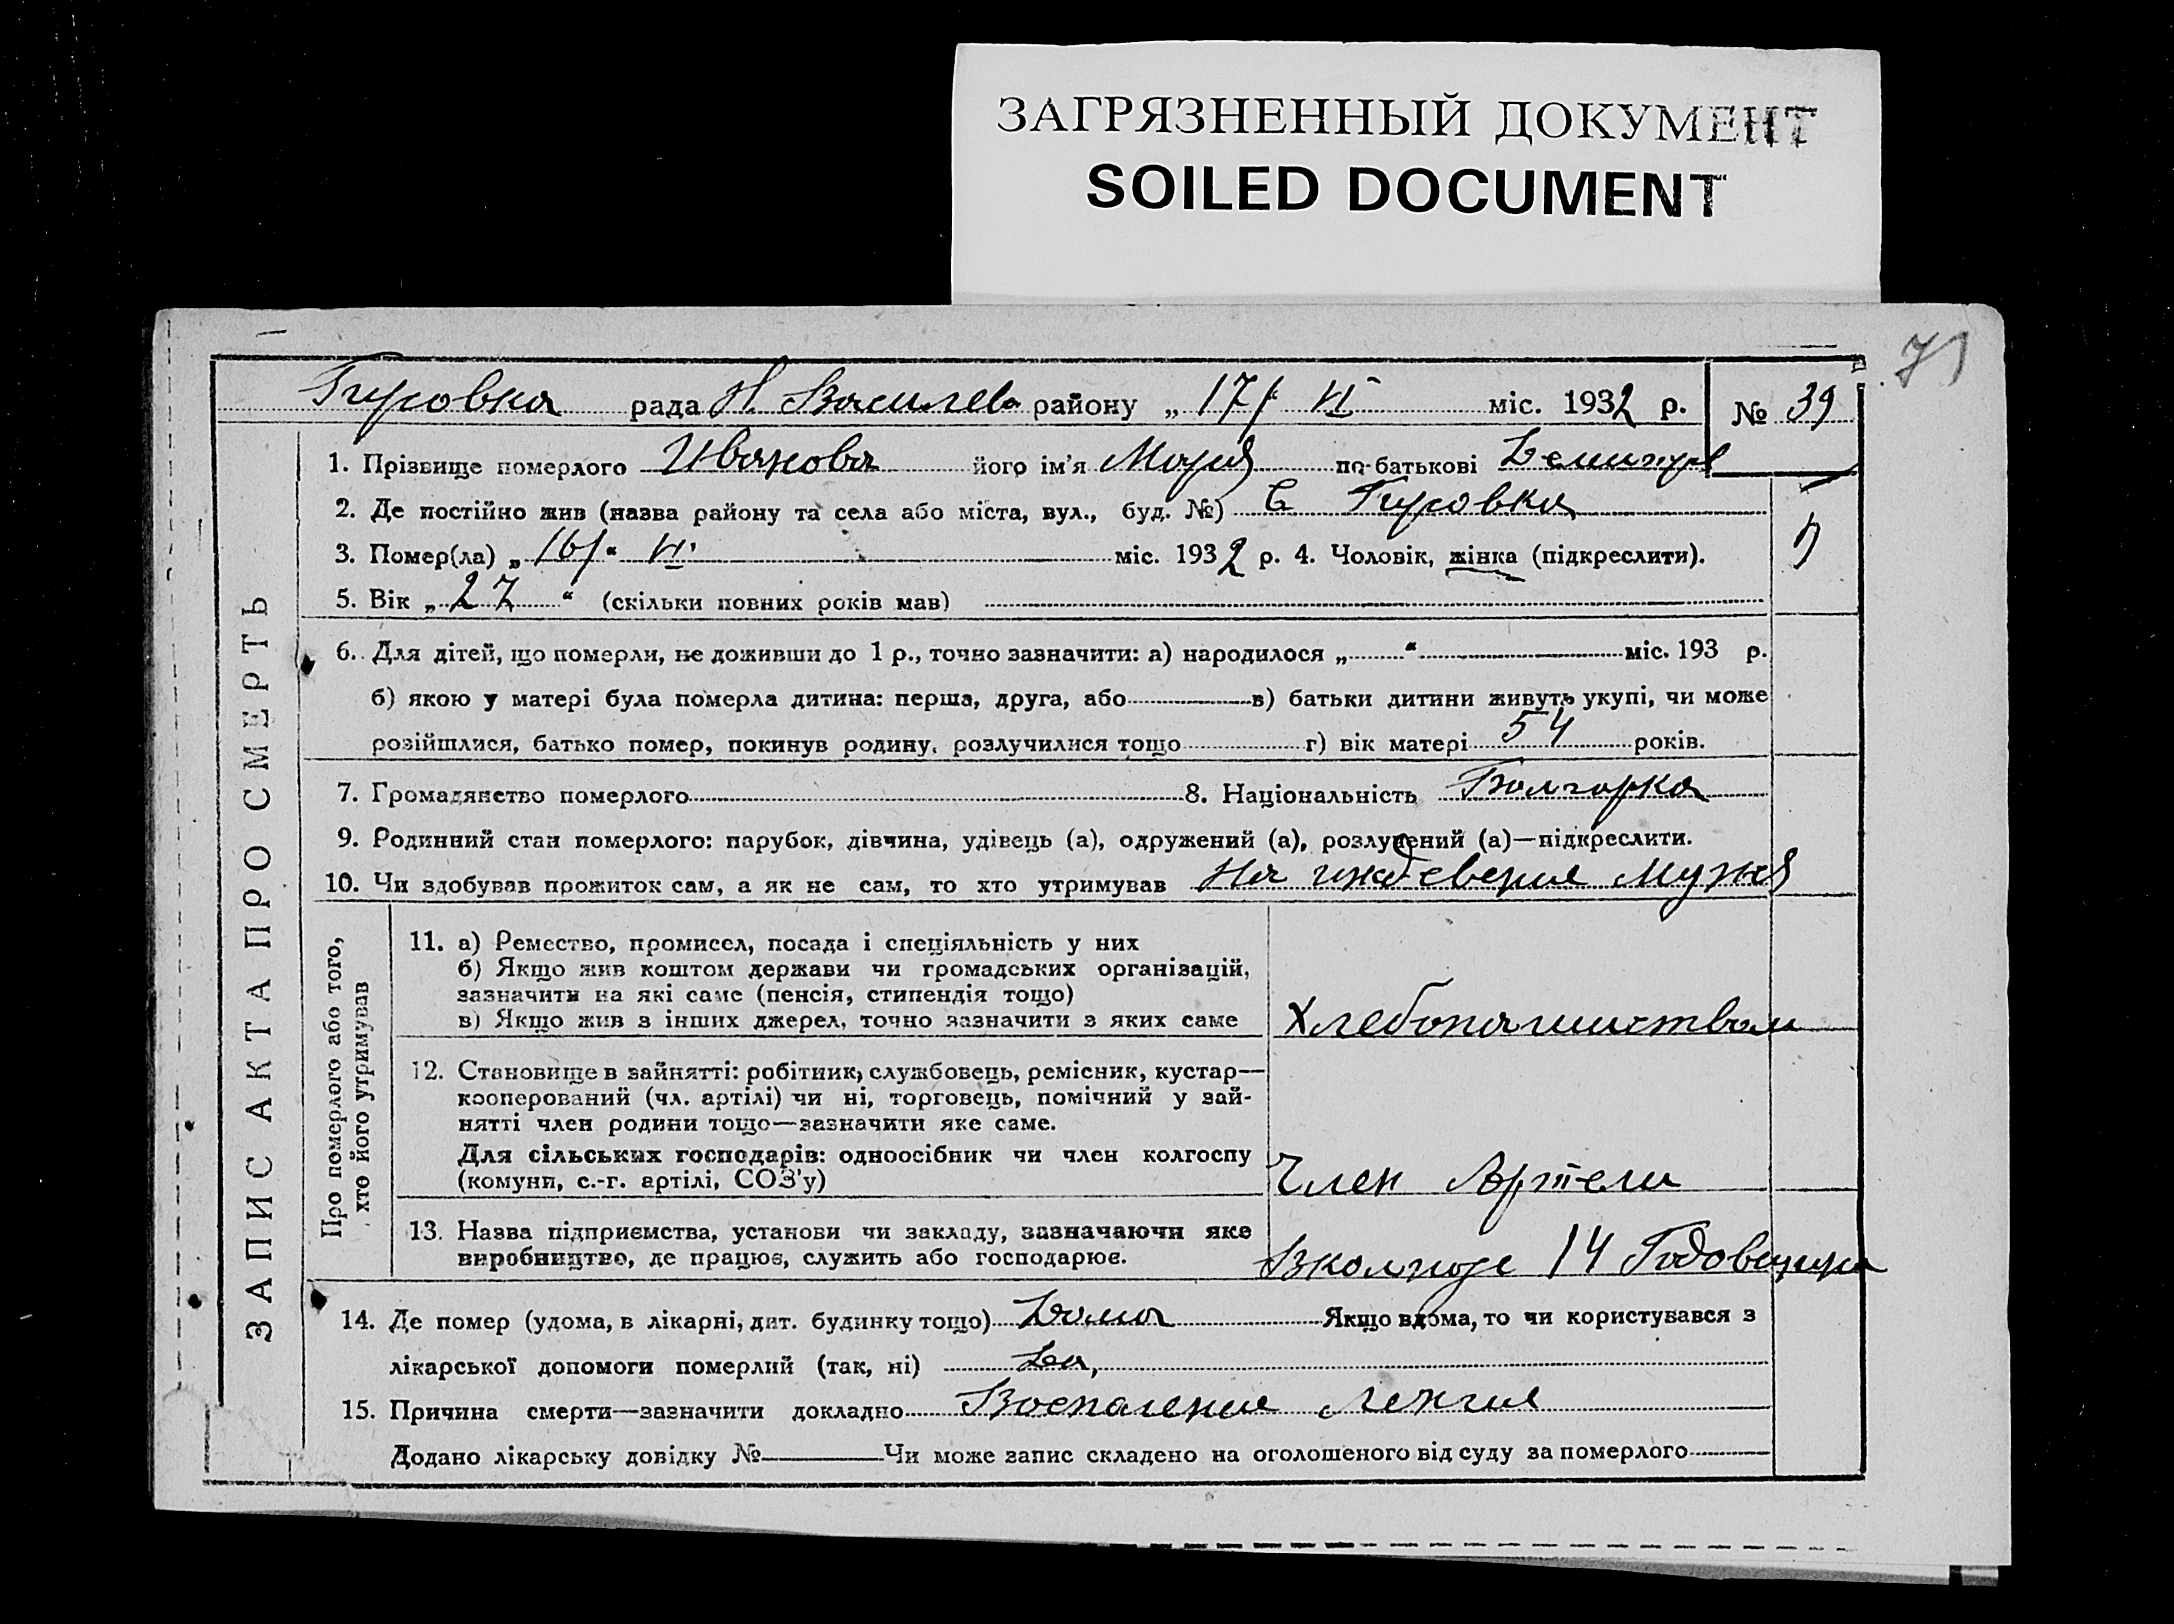 ЗАГРЯЗНЕННЫЙ ДОКУМЕНТ
SOILED DOCUMENT
71
Гировка рада Н. Василева району „17/ VI міс. 1932 р. № 39
1. Прізвище померлого Иванова його ім'я Мария по-батькові
2. Де постійно жив (назва району та села або міста, вул., буд. №) С Гировка
3. Помер(ла) „16/“ VI міс. 1932 р. 4. Чоловік, жінка (підкреслити).
5. Вік „27“ (скільки повних років мав)
6. Для дітей, що померли, не доживши до 1 р., точно зазначити: а) народилося „ “ міс. 193 р.
б) якою у матері була померла дитина: перша, друга, або в) батьки дитини живуть укупі, чи може
розійшлися, батько помер, покинув родину, розлучилися тощо г) вік матері 54 років.
7. Громадянство померлого 8. Національність Болгарка
9. Родинний стан померлого: парубок, дівчина, удівець (а), одружений (а), розлучений (а)—підкреслити.
10. Чи здобував прожиток сам, а як не сам, то хто утримував На иждеверие Мужя
ЗАПИС АКТА ПРО СМЕРТЬ
Про померлого або того,
хто його утримував
11. а) Ремество, промисел, посада і спеціяльність у них
б) Якщо жив коштом держави чи громадських організацій,
зазначити на які саме (пенсія, стипендія тощо)
в) Якщо жив з інших джерел, точно зазначити з яких саме Хлебопашиством
12. Становище в зайнятті: робітник, службовець, ремісник, кустар—
кооперований (чл. артілі) чи ні, торговець, помічний у зай-
нятті член родини тощо—зазначити яке саме.
Для сільських господарів: одноосібник чи член колгоспу
(комуни, с.-г. артілі, СОЗ'у) Член Артели
13. Назва підприємства, установи чи закладу, зазначаючи яке
виробництво, де працює, служить або господарює. Вколхозе 14 Годовщина
14. Де помер (удома, в лікарні, дит. будинку тощо) Дома Якщо вдома, то чи користувався з
лікарської допомоги померлий (так, ні) Да,
15. Причина смерти—зазначити докладно Воспаление Легкие
Додано лікарську довідку № Чи може запис складено на оголошеного від суду за померлого